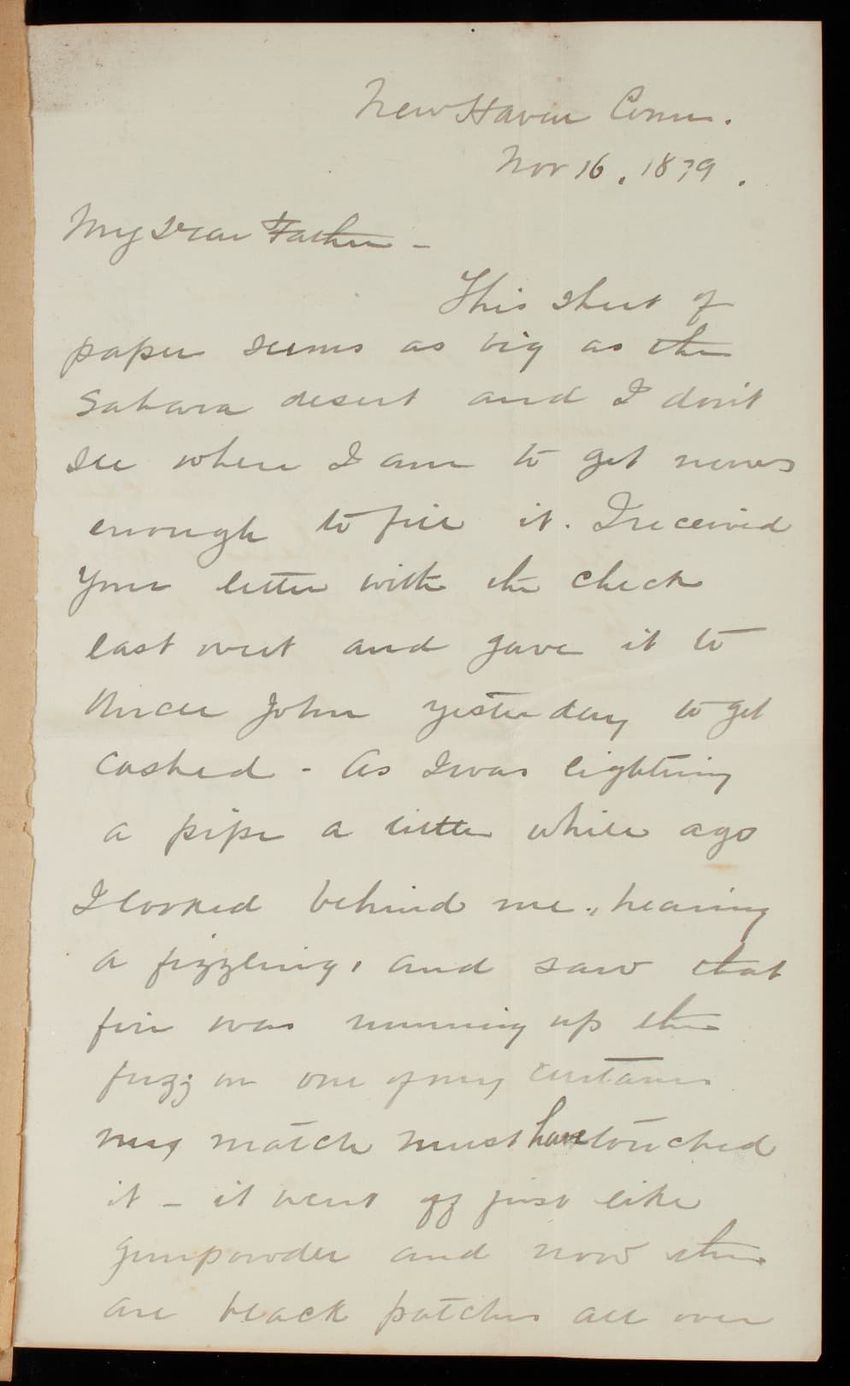 New Haven Conn.
Nov 16. 1879.
My Dear Father -
This sheet of
paper seems as big as the
Sahara desert and I don't
see where I am to get news
enough to fill it. I received
your letter with the check
last week and gave it to
Uncle John yesterday to get
cashed - As I was lighting
a pipe a little while ago
I looked behind me, hearing
a fizzling, and saw that
fire was running up the
fuzz on one of my curtains
my match must have touched
it - it went off just like
gunpowder and now there
are black patches all over